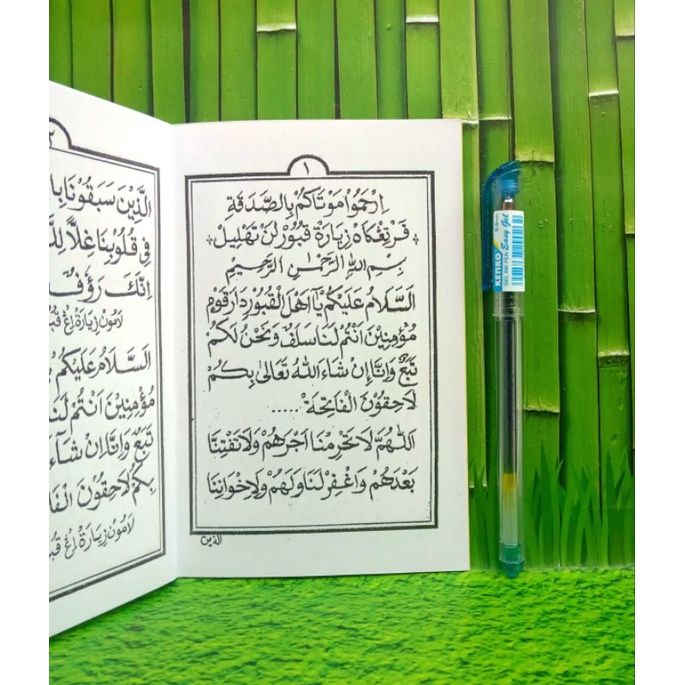 ١
اِرْحَمُوْا مَوْتَاكُمْ بِالصَّدَقَةِ
فَرْتِڠْكَاهْ زِيَارَةْ قُبُوْرْ لَنْ تَهْلِيْلْ
بِسْمِ اللهِ الرَّحْمٰنِ الرَّحِيْمِ
اَلسَّلَامُ عَلَيْكُمْ يَآ اَهْلَ الْقُبُوْرِ دَارَ قَوْمٍ
مُؤْمِنِيْنَ اَنْتُمْ لَنَا سَلَفٌ وَنَحْنُ لَكُمْ
تَبَعٌ وَاِنَّا اِنْ شَاءَ اللهُ تَعَالٰى بِكُمْ
لَاحِقُوْنَ اَلْفَاتِحَةْ .....
اَللّٰهُمَّ لَا تَحْرِمْنَا اَجْرَهُمْ وَلَا تَفْتِنَّا
بَعْدَهُمْ وَاغْفِرْ لَنَا وَلَهُمْ وَلِاِخْوَانِنَا
الذين
٢
الَّذِيْنَ سَبَقُوْنَا
فِي قُلُوْبِنَا غِلًّا
اِنَّكَ رَؤُفٌ
لَامُوْن زِيَارَةْ اِڠْ
اَلسَّلَامُ عَلَيْكُمْ
مُؤْمِنِيْنَ اَنْتُمْ
تَبَعٌ وَاِنَّا اِنْ
بِكُمْ لَاحِقُوْنَ
لَامُوْن زِيَارَةْ اِڠْ
KENKO
Easy Gel
GEL INK PEN